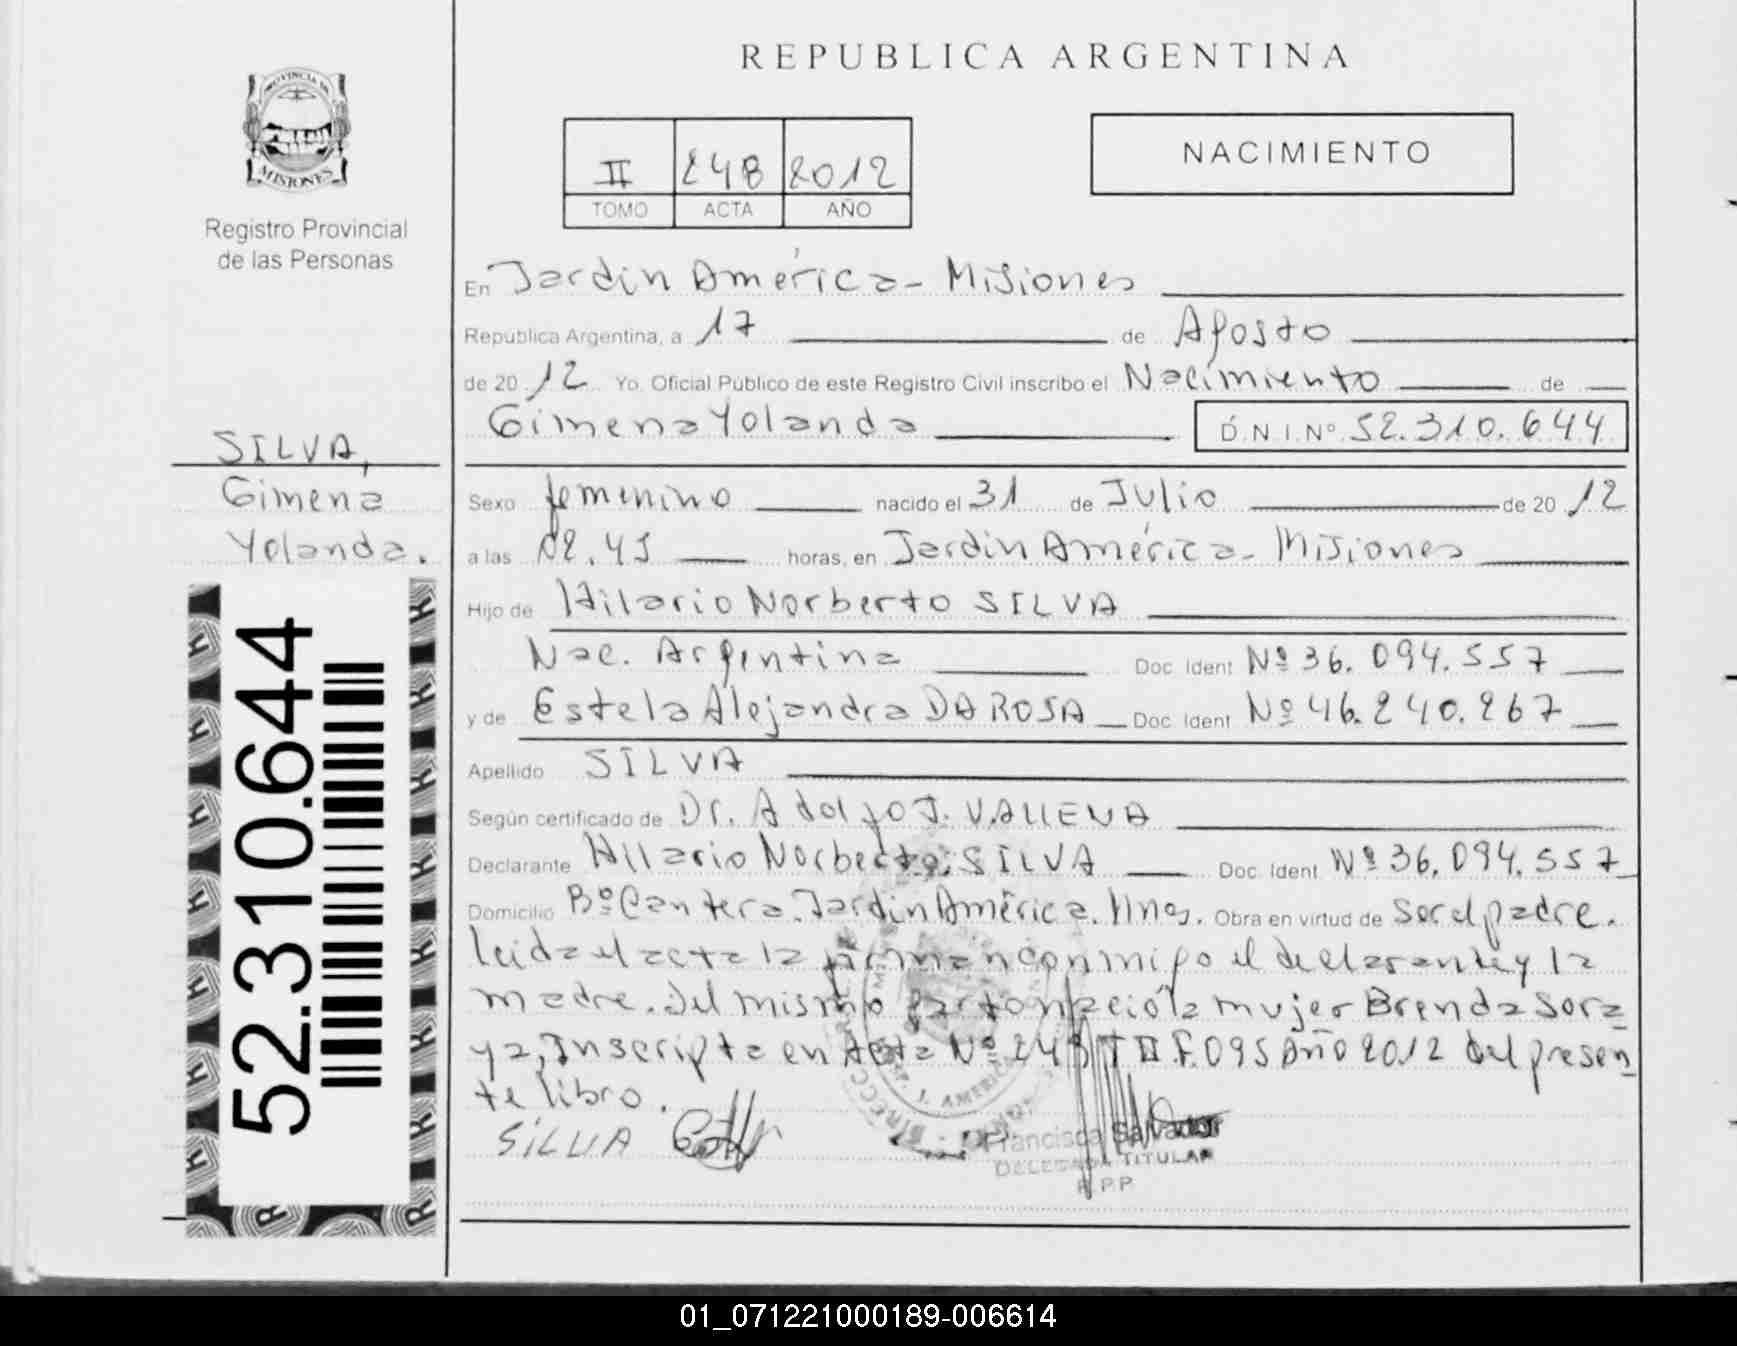 REPUBLICA ARGENTINA
PROVINCIA DE
MISIONES
Registro Provincial
de las Personas
II 248 2012
TOMO ACTA AÑO
NACIMIENTO
En Jardin América - Misiones
Republica Argentina, a 17 de Agosto
de 20 12 Yo, Oficial Público de este Registro Civil inscribo el Nacimiento de
Gimena Yolanda D.N.I.Nº 52.310.644
SILVA,
Gimena
Yolanda.
Sexo femenino nacido el 31 de Julio de 20 12
a las 02.45 horas, en Jardin América - Misiones
Hijo de Hilario Norberto SILVA
Nac. Argentina Doc Ident Nº 36.094.557
y de Estela Alejandra DA ROSA Doc Ident Nº 46.240.267
Apellido SILVA
Según certificado de Dr. Adolfo J. VALLENA
Declarante Hilario Norberto SILVA Doc. Ident Nº 36.094.557
Domicilio Bº Cantera. Jardin América. Mnes. Obra en virtud de ser el padre.
leida el acta la firman conmigo el declarante y la
madre. Del mismo parto nació la mujer Brenda Sora
ya, Inscripta en Acta Nº 249 T II F. 095 Año 2012 del presen
te libro.
SILVA
Francisca Salvador
DELEGADA TITULAR
R.P.P.
52.310.644
01_071221000189-006614